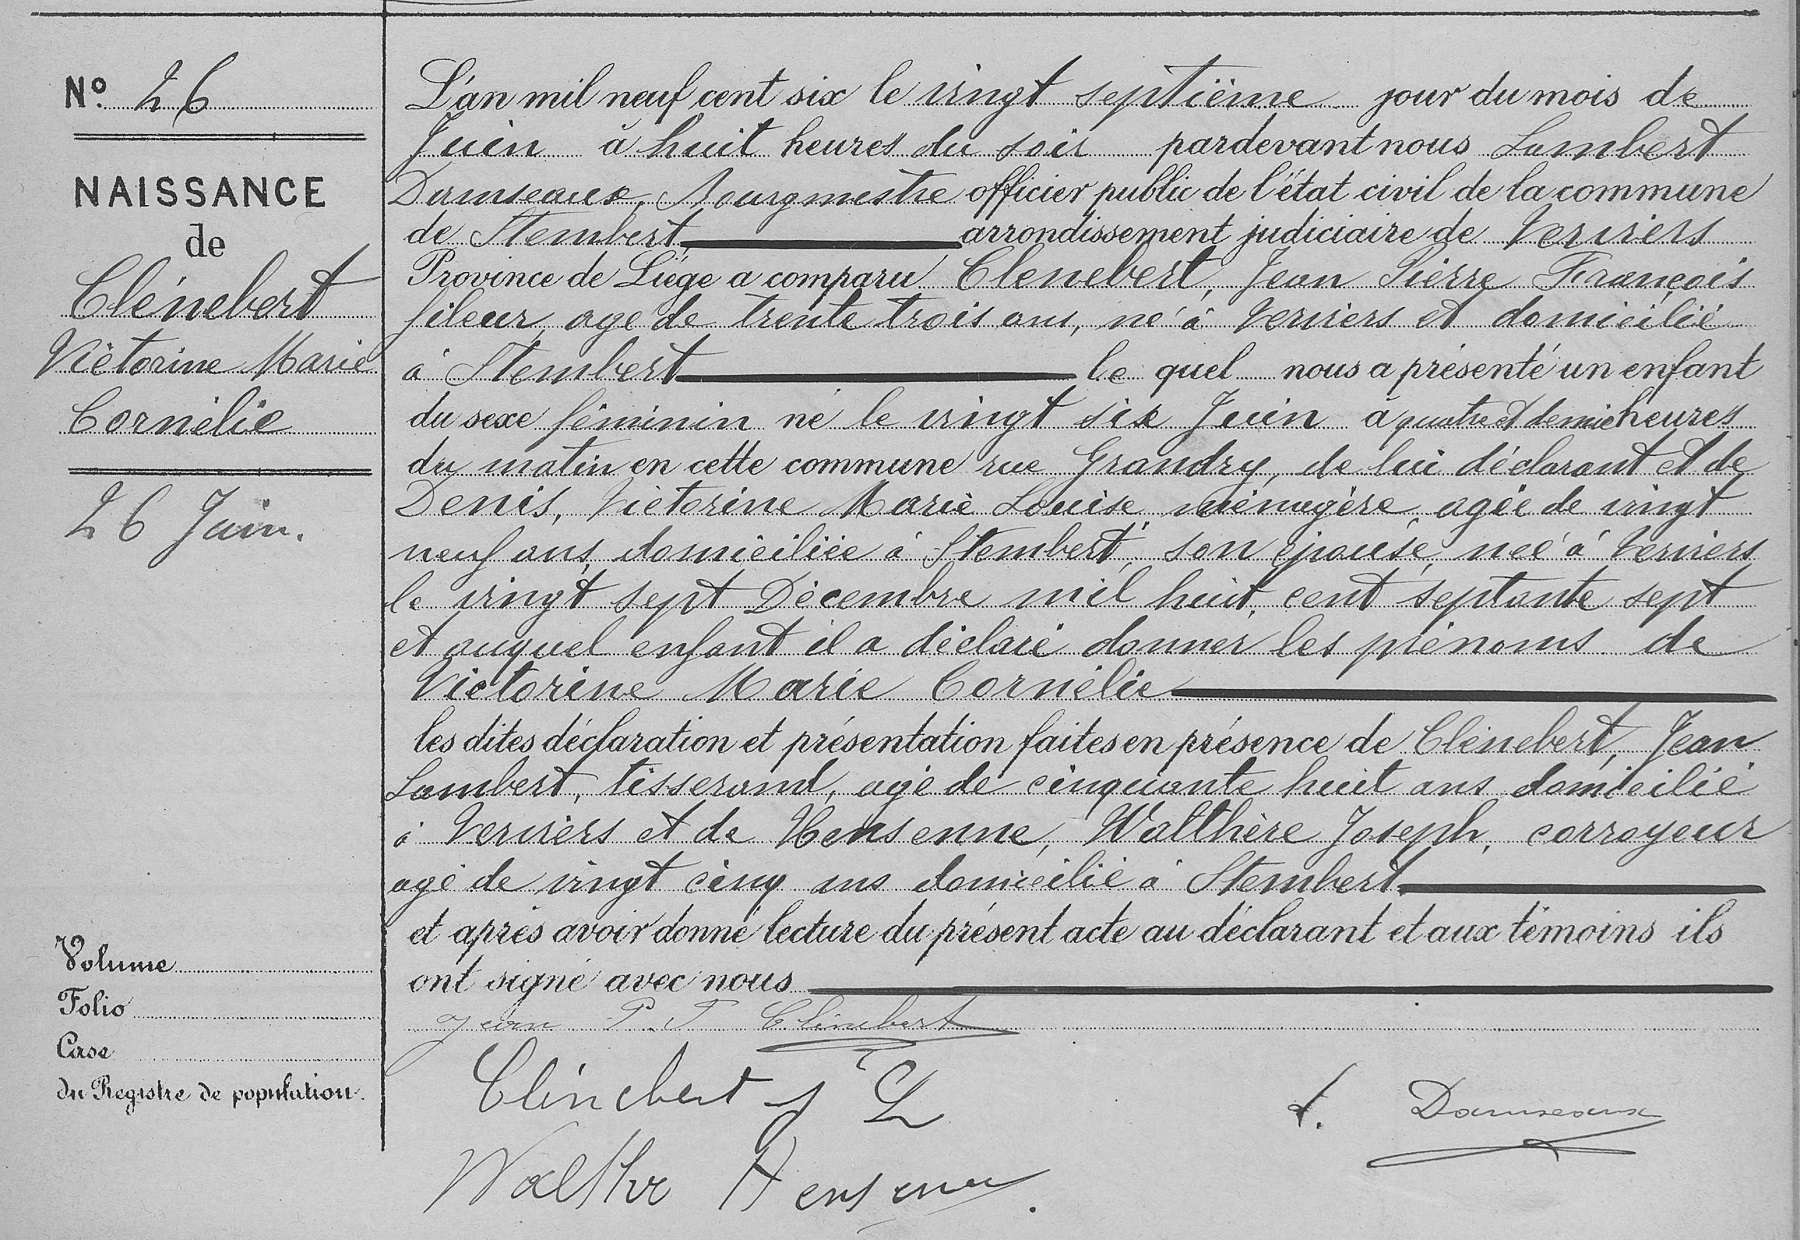 N° 26
NAISSANCE
de
Clénebert
Victorine Marie
Cornélie
26 Juin.
Volume
Folio
Case
du Registre de population.
L'an mil neuf cent six le vingt septième jour du mois de
Juin à huit heures du soir pardevant nous Lambert
Damseaux, Bourgmestre officier public de l'état civil de la commune
de Stembert arrondissement judiciaire de Verviers
Province de Liége a comparu Clénebert, Jean Pierre François
fileur, agé de trente trois ans, né à Verviers et domicilié
à Stembert le quel nous a présenté un enfant
du sexe féminin né le vingt six Juin à quatre et demie heures
du matin en cette commune rue Grandry, de lui déclarant et de
Denis, Victorine Marie Louise ménagère agée de vingt
neuf ans, domiciliée à Stembert, son épouse, née à Verviers
le vingt sept Décembre mil huit cent septante sept
et auquel enfant il a déclaré donner les prénoms de
Victorine Marie Cornélie
les dites déclaration et présentation faites en présence de Clénebert, Jean
Lambert, tisserand, agé de cinquante huit ans domicilié
à Verviers et de Hensenne, Walthère Joseph, corroyeur
agé de vingt cinq ans domicilié à Stembert
et après avoir donné lecture du présent acte au déclarant et aux témoins ils
ont signé avec nous
Jean P. F Clénebert
Clénebert J L
L. Damseaux
Walthre Hensenne.